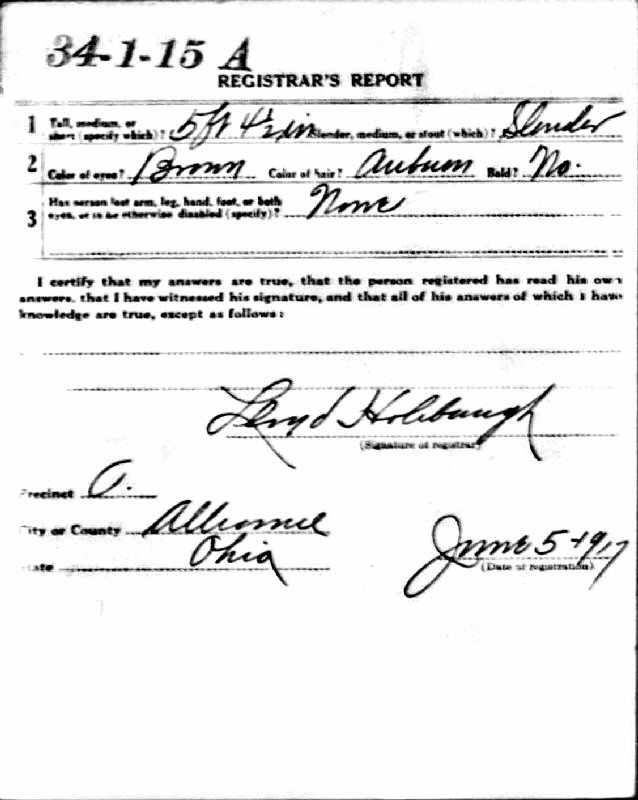 34-1-15 A
REGISTRAR'S REPORT
1 Tall, medium, or short (specify which)? 5 ft 4½ in Slender, medium, or stout (which)? Slender
2 Color of eyes? Brown Color of hair? Auburn Bald? No.
3 Has person lost arm, leg, hand, foot, or both
eyes, or is he otherwise disabled (specify)? None
I certify that my answers are true, that the person registered has read his own
answers, that I have witnessed his signature, and that all of his answers of which I have
knowledge are true, except as follows:
Lloyd Holibaugh
(Signature of registrar)
Precinct A.
City or County Alliance
State Ohio
June 5-1917
(Date of registration)